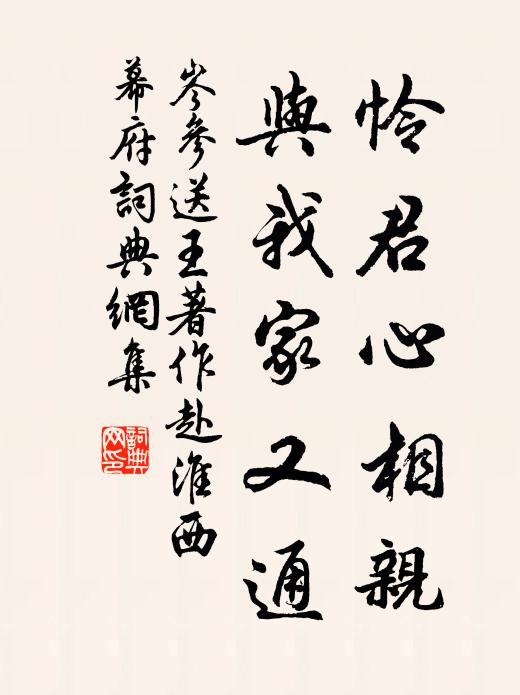 怜君心相親
與我家又通
岑參送王著作赴淮西
幕府詞典網集
詞典
网印